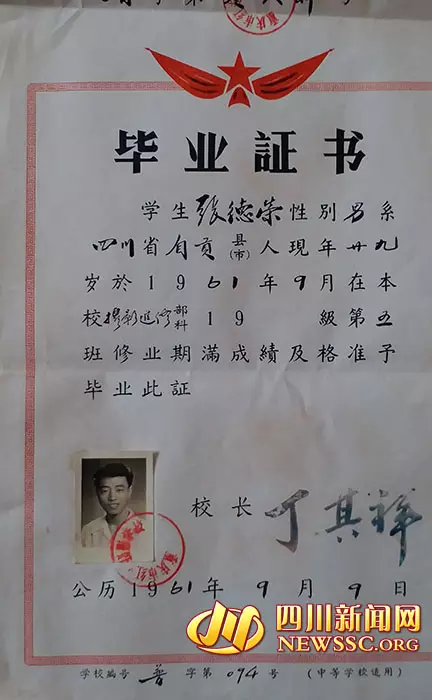 毕业証书
学生張德荣性别男系
四川省自贡县(市)人現年廿九
岁於1961年9月在本
校摄影進修部科19 級第五
班修业期滿成績及格准予
毕业此証
校长 丁其祥
公历1961年9月9日
四川新闻网
NEWSSC.ORG
学校編号 普 字第 094 号 (中等学校适用)